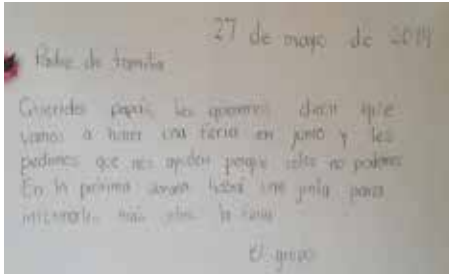 27 de mayo de 2019
Padre de familia
Queridos papás les queremos decir que
vamos a hacer una feria en junio y les
pedimos que nos ayuden porque solos no podemos
En la próxima semana habrá una junta para
informarles más sobre la feria
El grupo